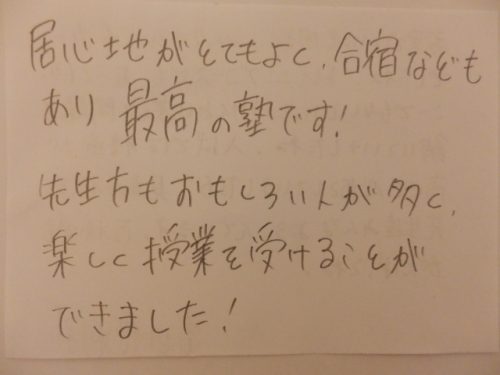 居心地がとてもよく、合宿なども
あり 最高の塾です!
先生方もおもしろい人が多く、
楽しく授業を受けることが
できました!